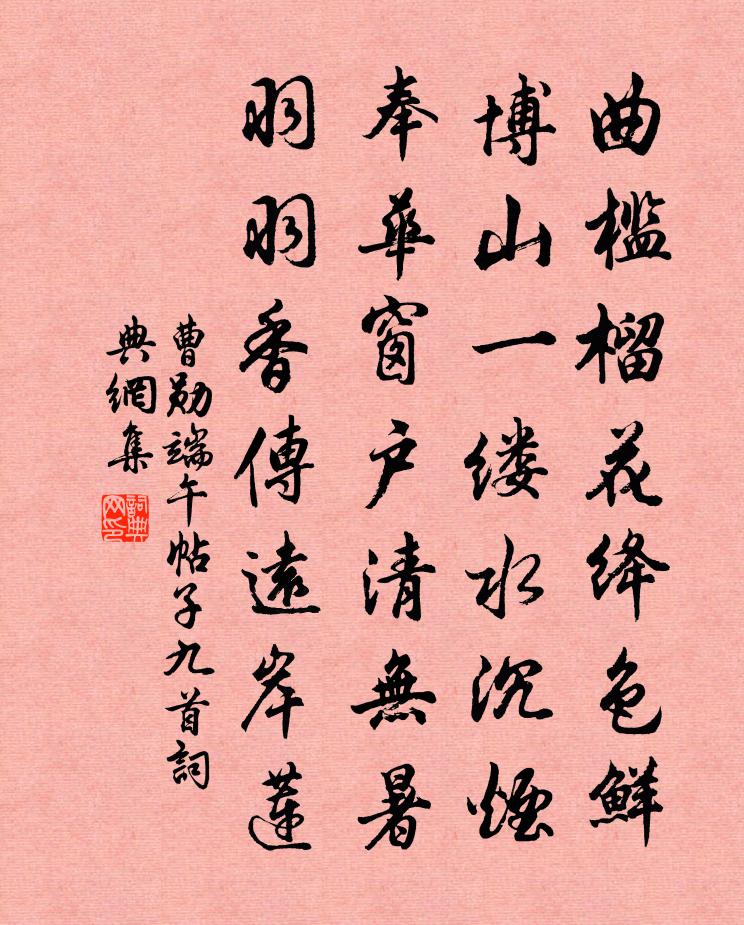 曲檻榴花绛色鮮
博山一缕水沉煙
奉華窗户清無暑
羽羽香傳遠岸蓮
曹勛端午帖子九首詞
典網集
詞典网印